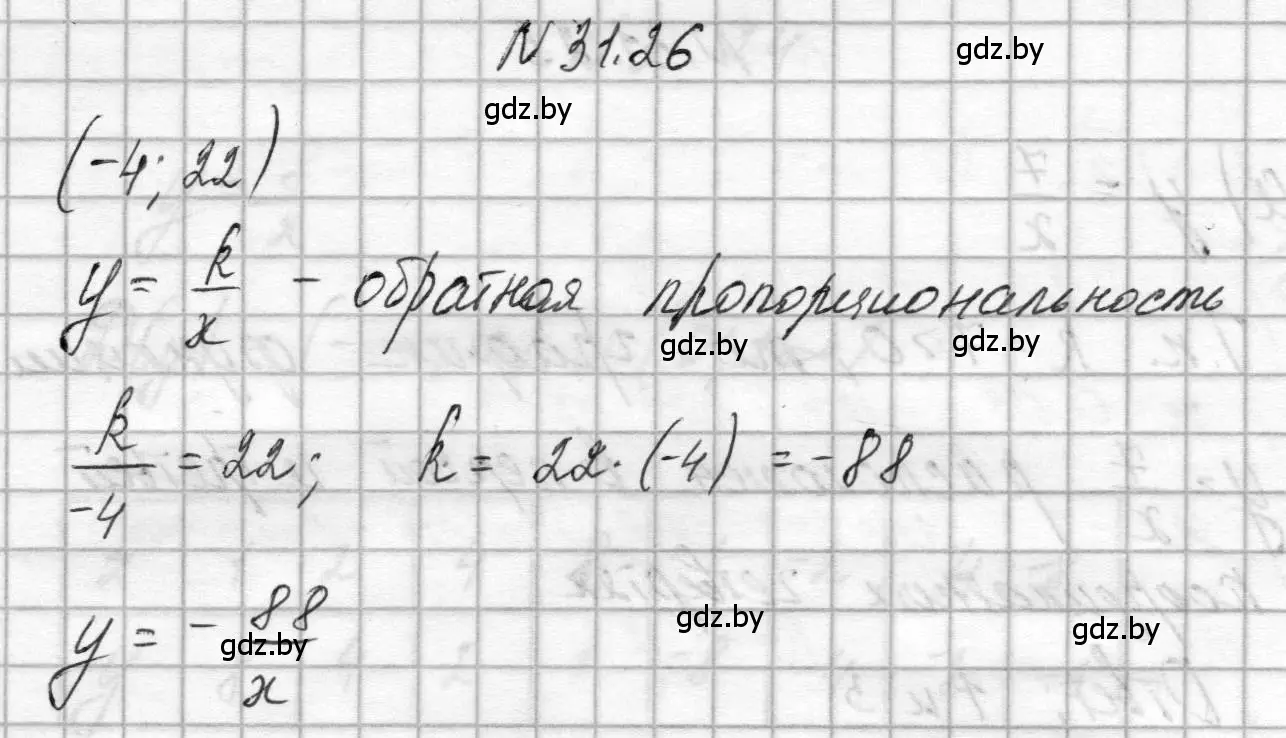 N 31.26
gdz.by
gdz.by
(-4; 22)
y = k/x - обратная пропорциональность
gdz.by
gdz.by
k/-4 = 22; k = 22 · (-4) = -88
y = - 88/x
gdz.by
gdz.by
gdz.by